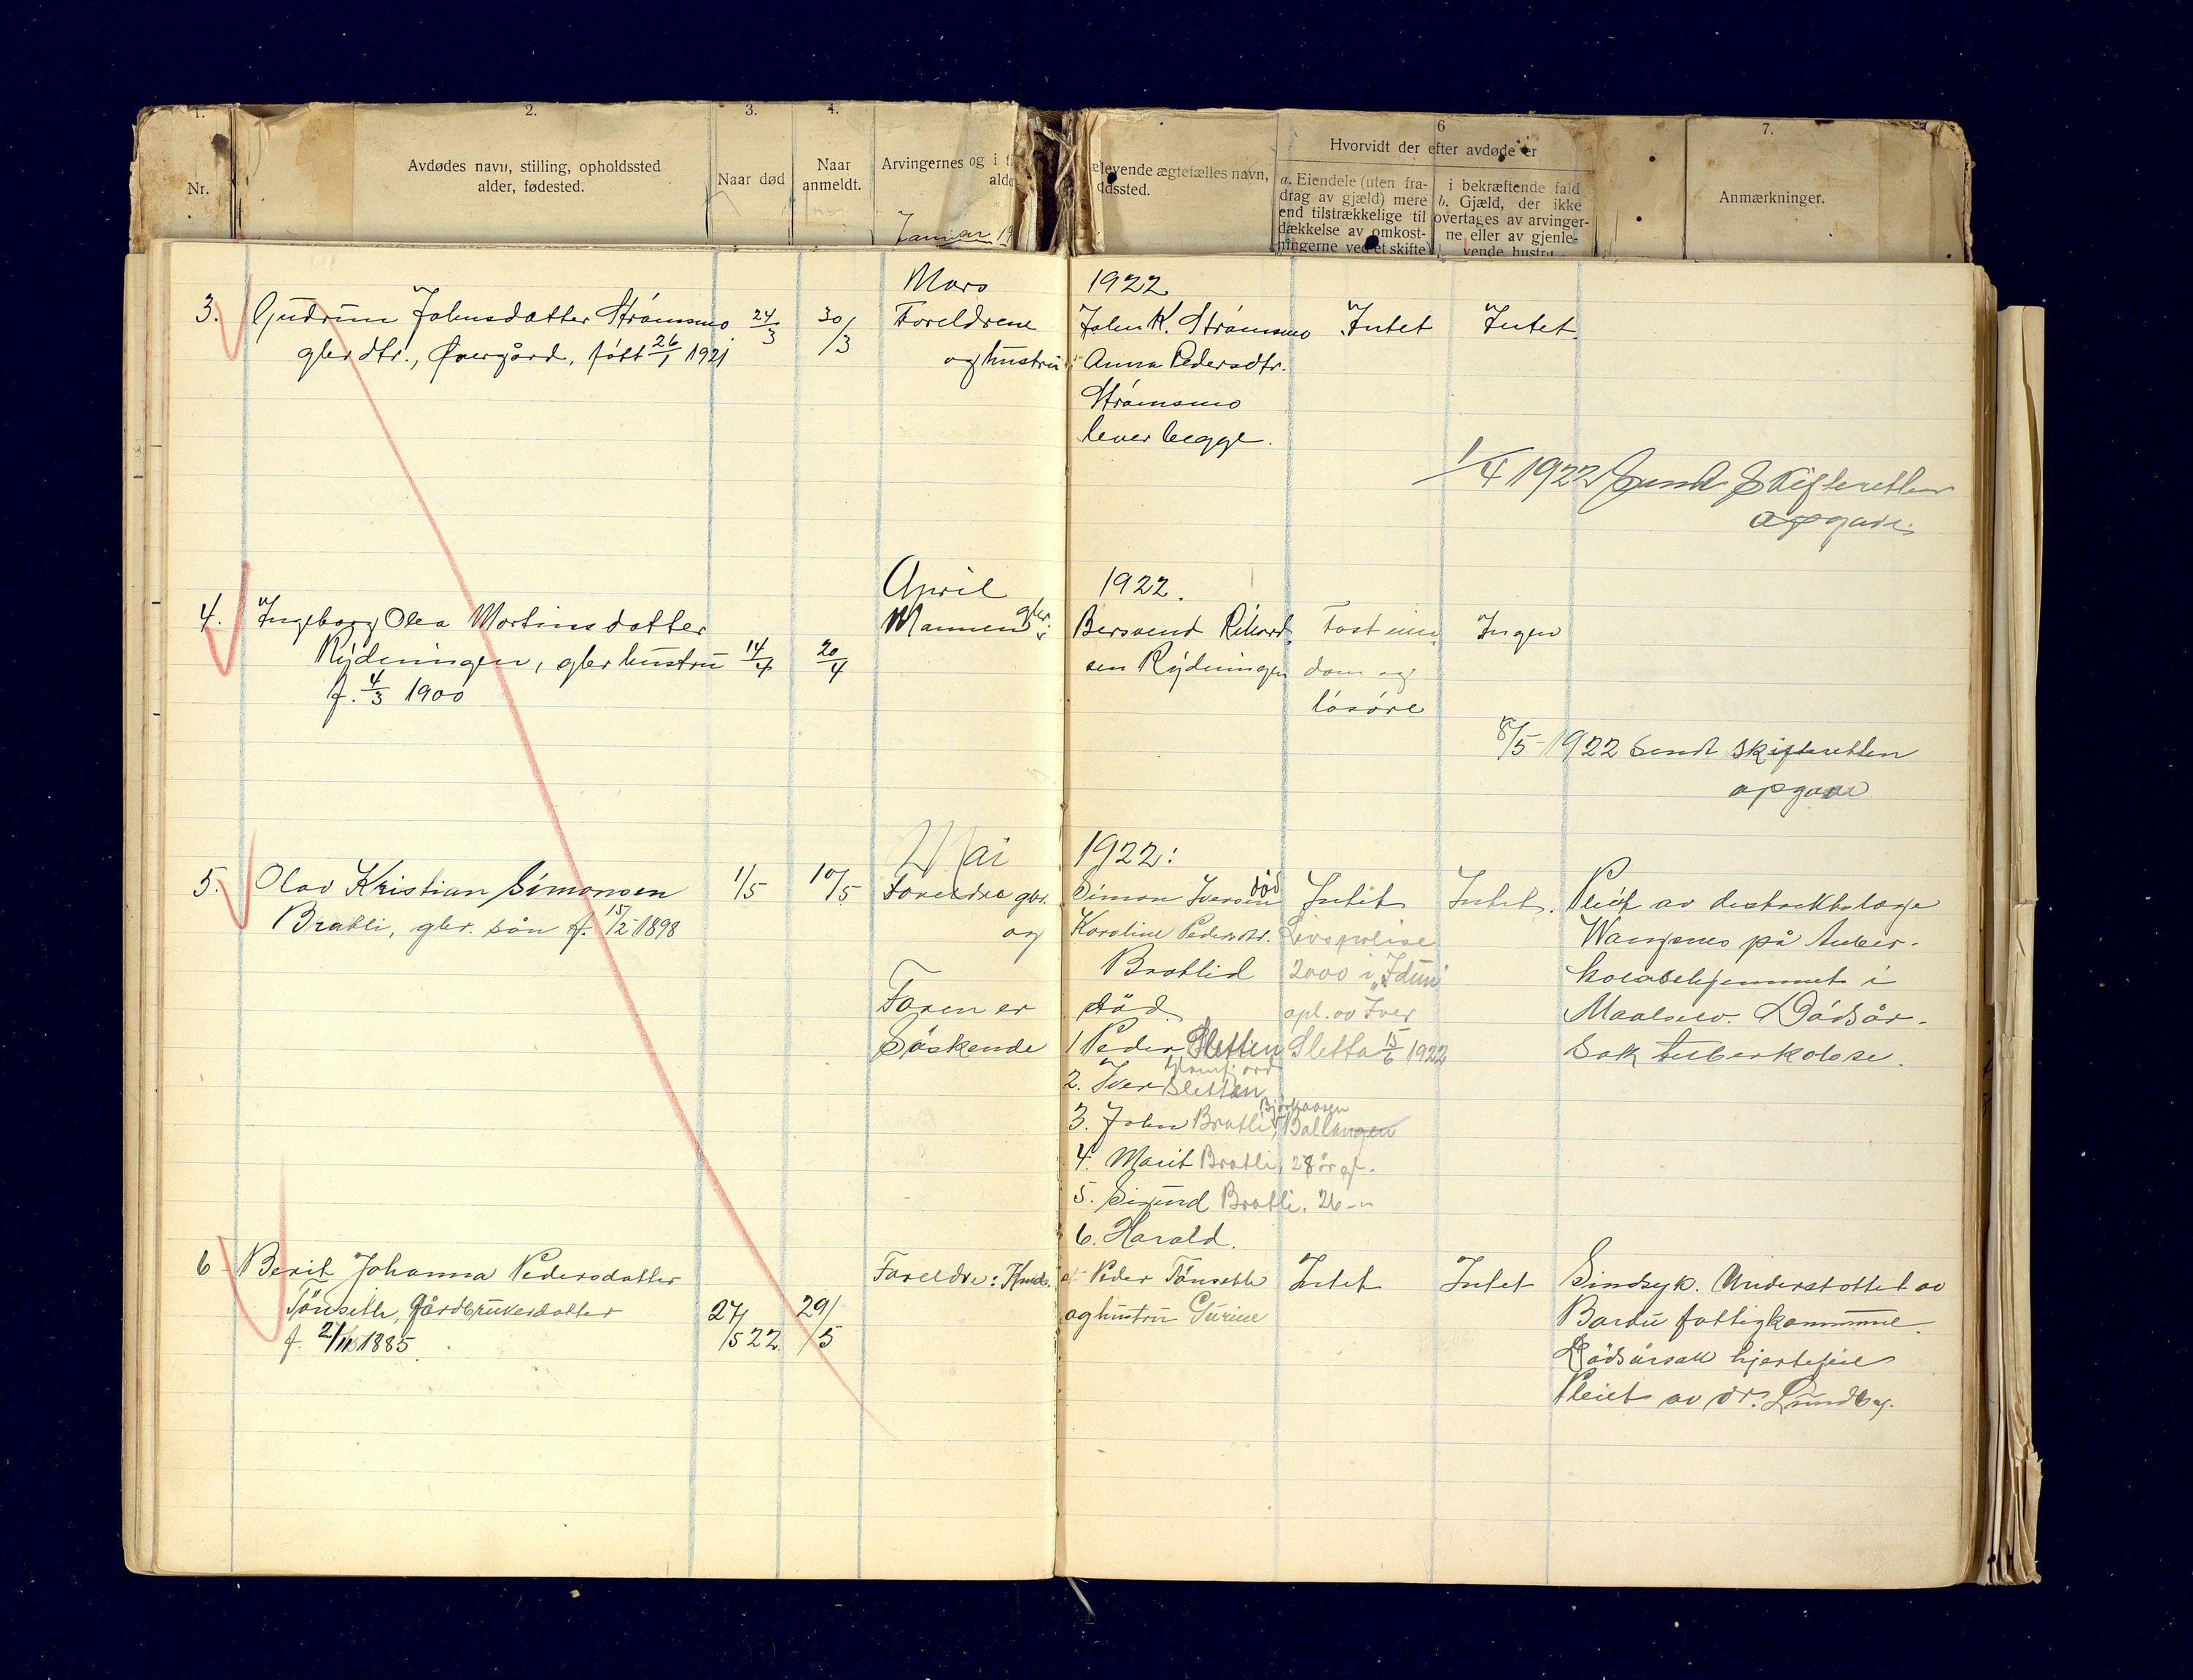 1.
2.
3.
4.
6
7.
Nr.
Avdødes navn, stilling, opholdssted
alder, fødested.
Naar død
Naar
anmeldt.
Arvingernes og i
alde
Januar 19
elevende ægtefælles navn,
dssted.
Hvorvidt der efter avdøde er
a. Eiendele (uten fra-
drag av gjæld) mere
end tilstrækkelige til
dækkelse av omkost-
ningerne ved et skifte
i bekræftende fald
b. Gjæld, der ikke
overtages av arvinger-
ne eller av gjenle-
vende hustru
Anmærkninger.
Mars 1922
3. Gudrun Johnsdatter Strømsmo 24/3 30/3 Foreldrene John K. Strømsmo Intet Intet.
gbr dtr., Øvergård, født 26/1 1921 og hustru Anna Pedersdtr.
Strømsmo
lever begge.
1/4 1922 Sendt Skifteretten
opgave.
April 1922.
4. Ingeborg Olea Martinsdatter Mannen gbr. Bersvend Rikard Fast eien Ingen
Rydningen, gbr hustru 14/4 20/4 sen Rydningen dom og
f. 4/3 1900 løsøre
8/5 - 1922 Sendt skifteretten
opgave
Mai 1922:
5. Olav Kristian Simonsen 1/5 10/5 Foreldre gbr. Simon Iversen død Intet Intet. Pleiet av distriktslæge
Bratli, gbr. søn f. 15/2 1898 og Karoline Pedersdtr. Livspolise Wangsnes på tuber-
Bratlid 2000 i „Idun" kolosehjemmet i
Faren er død. opl. av Iver Maalselv. Dødsår-
Søskende 1 Peder Sletten Sletta 15/6 1922 sak tuberkolose.
2. Iver Sletten
3. John Bratli, Bjørkaasen Ballangen
4. Marit Bratli, 28 år gl.
5. Sigurd Bratli. 26 -"-
6. Harald.
6 Berit Johanna Pedersdatter Foreldre: Peder Tønseth Intet Intet Sindsyk. Understøttet av
Tønseth, Gårdbrukerdatter 27/5 22. 29/5 og hustru Gurine Bardu fattigkommune.
f. 2/11 1885. Dødsårsak hjertefeil
Pleiet av dr. Lundbg.